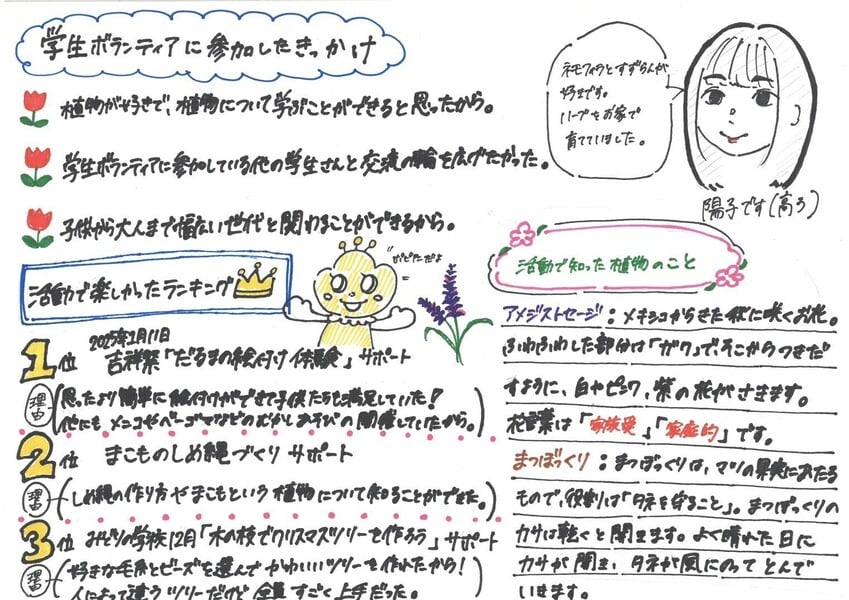 学生ボランティアに参加したきっかけ
植物が好きで、植物について学ぶことができると思ったから。
学生ボランティアに参加している他の学生さんと交流の輪を広げたかった。
子供から大人まで幅広い世代と関わることができるから。
ネモフィラとすずらんが
好きです。
ハーブをお家で
育てていました。
陽子です(高3)
活動で楽しかったランキング
2025年1月11日
1位 吉祥祭「だるまの絵付け体験」サポート
理由
思ったより簡単に絵付けができて子供たちも満足していた!
他にもメンコやベーゴマなどのむかしあそびの開催していたから。
2位 まこものしめ縄づくりサポート
理由
しめ縄の作り方やまこもという植物について知ることができた。
3位 みどりの学校12月「木の枝でクリスマスツリーを作ろう」サポート
理由
好きな毛糸とビーズを選んでかわいいツリーを作れたから!
人によって違うツリーだけど全員すごく上手だった。
活動で知った植物のこと
アメジストセージ:メキシコからきた秋に咲くお花。
ふわふわした部分は「ガク」で、そこからつきだ
すように、白やピンク、紫の花がさきます。
花言葉は「家族愛」「家庭的」です。
まつぼっくり:まつぼっくりは、マツの果実にあたる
もので、役割は「タネを守ること」。まつぼっくりの
カサは乾くと開きます。よく晴れた日に
カサが開き、タネが風にのってとんで
いきます。